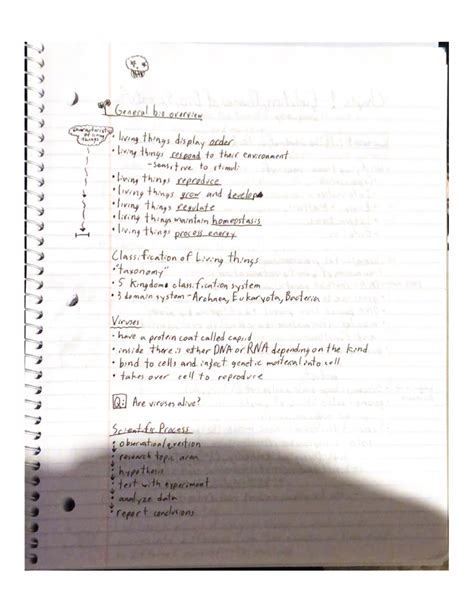 General bio overview
characteristics
of living
things
• living things display order
• living things respond to their environment
- sensitive to stimuli
• living things reproduce
• living things grow and develop
• living things regulate
• living things maintain homeostasis
• living things process energy
Classification of Living things
• "taxonomy"
• 5 Kingdom classification system
• 3 domain system - Archaea, Eukaryota, Bacteria
Viruses
• have a protein coat called capsid
• inside there is either DNA or RNA depending on the kind
• bind to cells and inject genetic material into cell
• takes over cell to reproduce
Q: Are viruses alive?
Scientific Process
• observation/question
• research topic area
• hypothesis
• test with experiment
• analyze data
• report conclusions